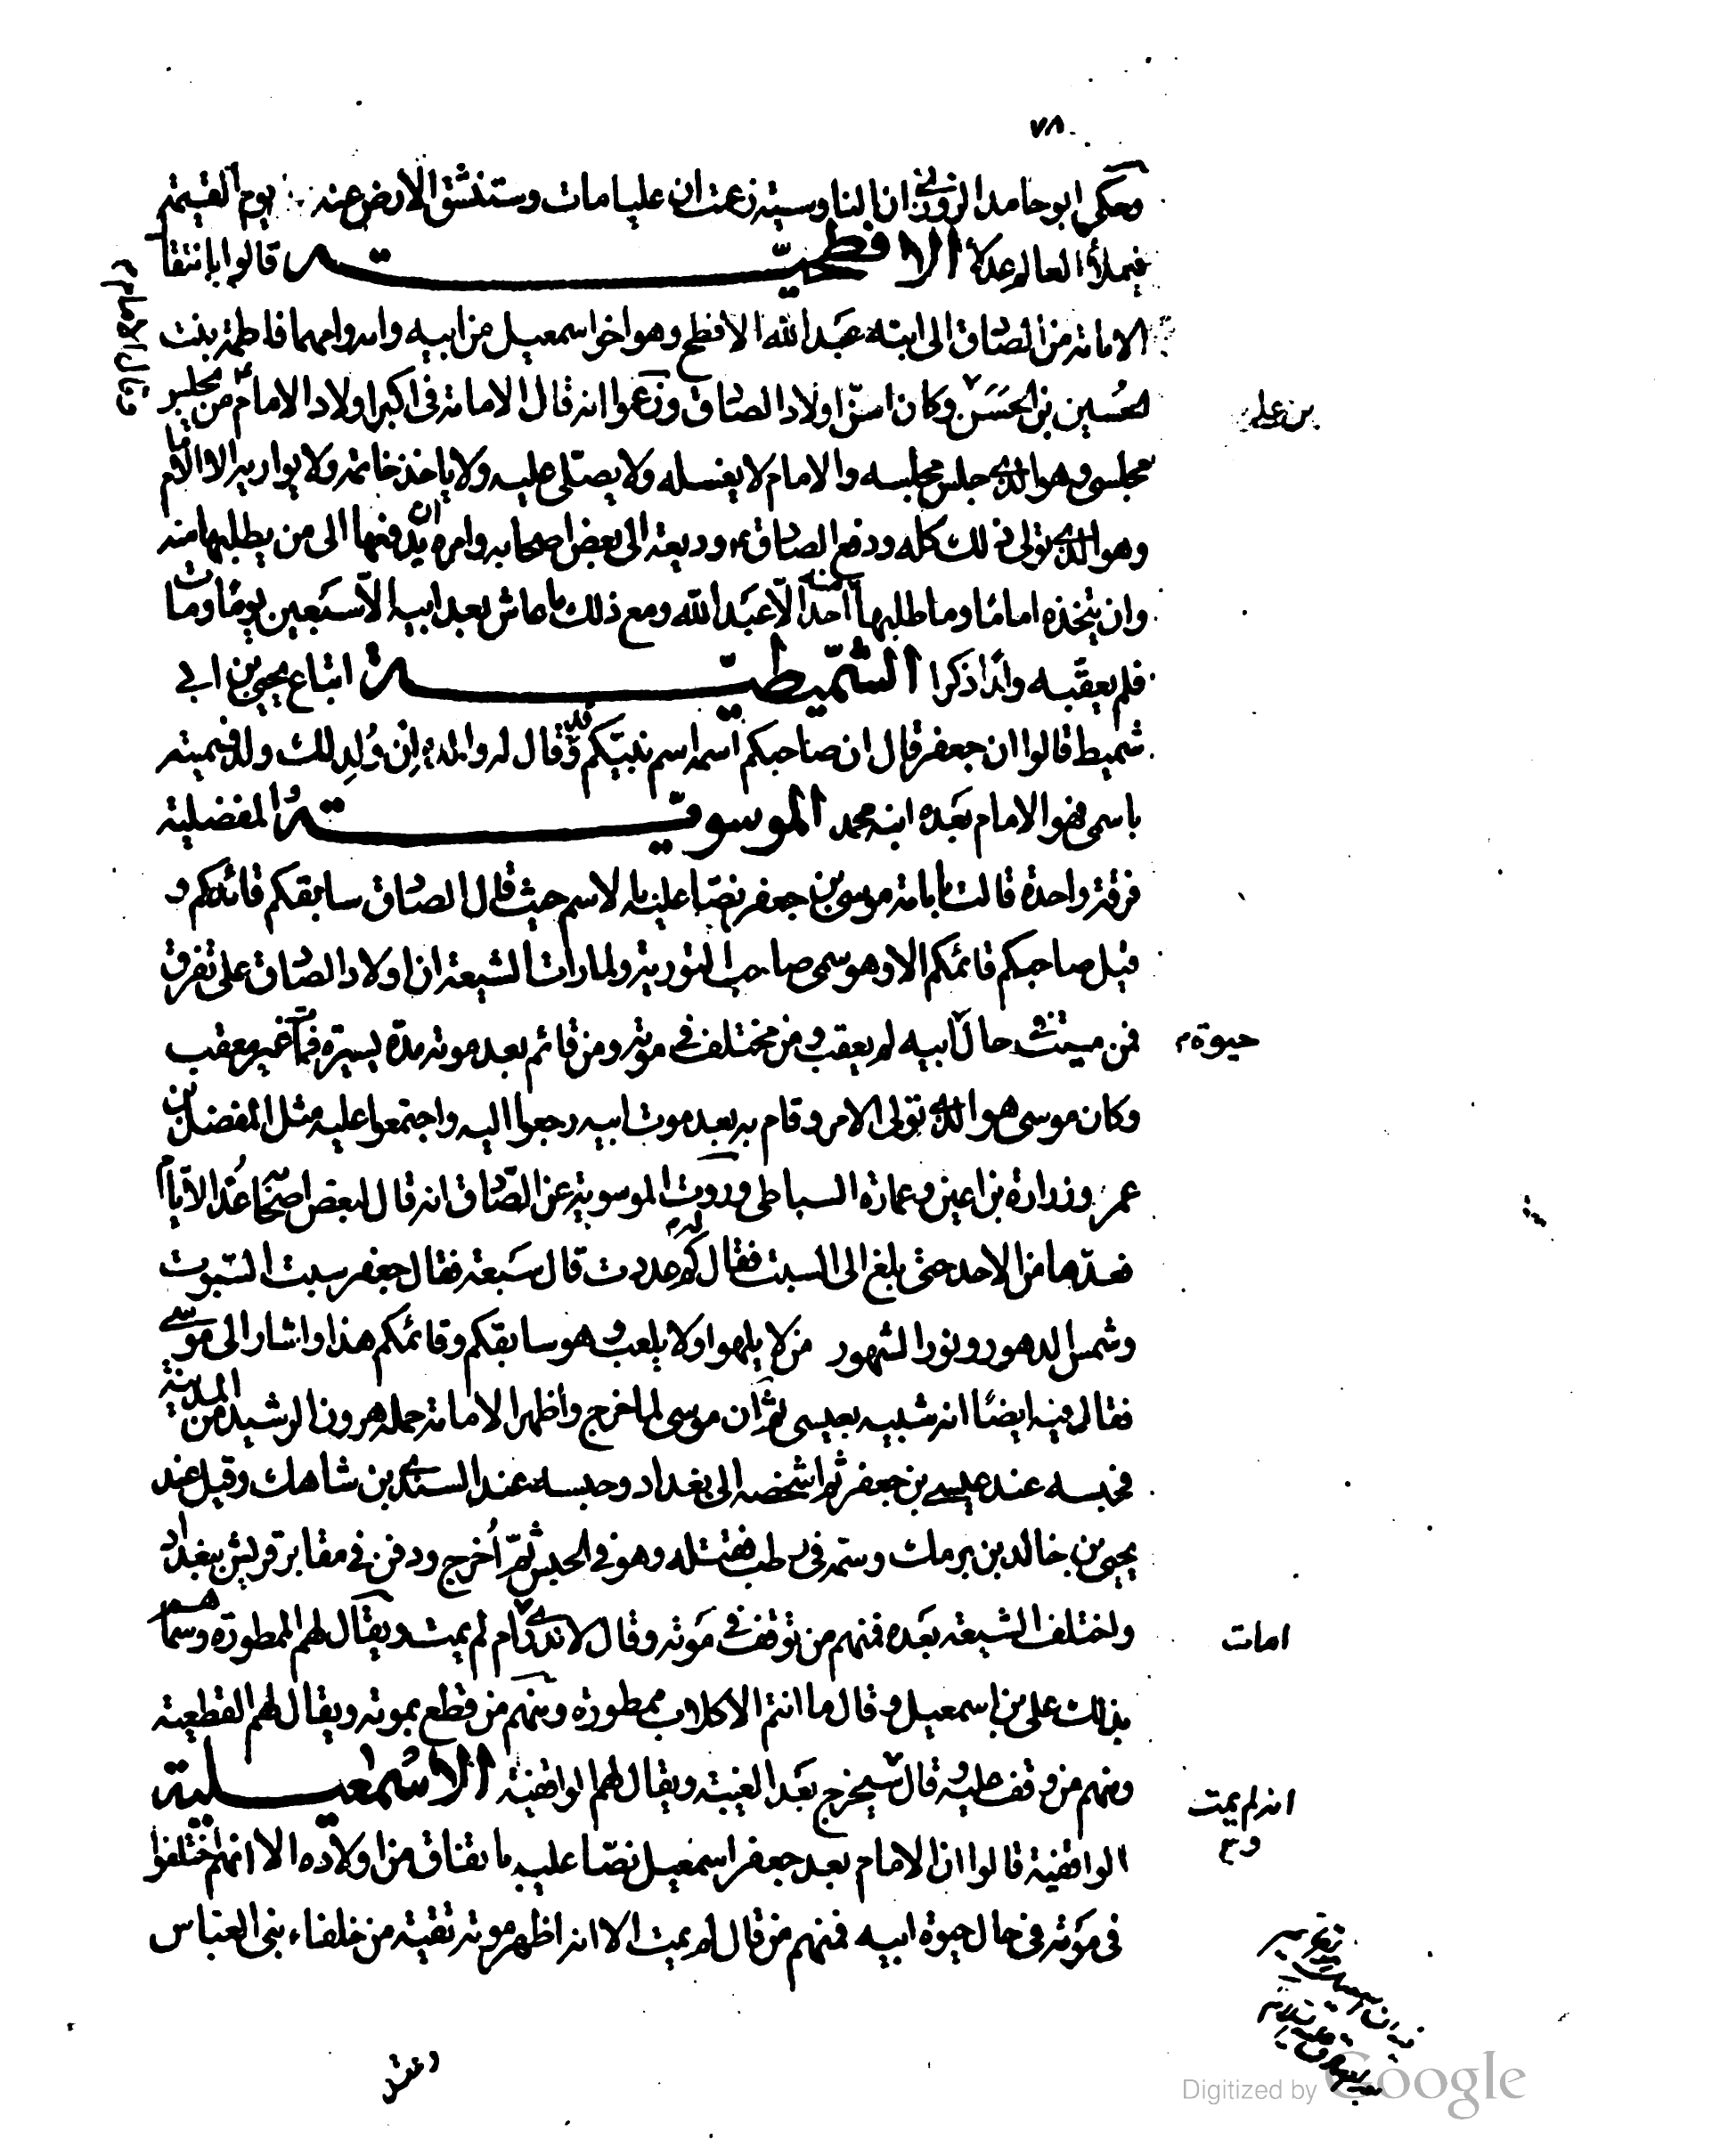 ٧٨
وحكى ابو حامد الزوزني ان الناوسية زعمت ان عليا مات وستنشق الارض عنه يوم القيمة
فيملأ العالم عدلا الافطحيّة قالوا بانتقال
الامامة من الصادق الى ابنه عبد الله الافطح وهو اخو اسمعيل من ابيه وامه وامهما فاطمة بنت
الحسين بن الحسن وكان اسنّ اولاد الصادق وزعموا انه قال الامامة في اكبر اولاد الامام من يجلس
بن على
مجلسى وهو الذي جلس مجلسه والامام لا يغسله ولا يصلى عليه ولا ياخذ خاتمه ولا يواريه الا الامام
وهو الذي تولى ذلك كله ودفع الصادق وديعة الى بعض اصحابه وامره ان يدفعها الى من يطلبها منه
وان يتخذه اماما وما طلبها منه احد الّا عبد الله ومع ذلك ما عاش بعد ابيه الّا سبعين يوما ومات
فلم يعقب له ولدًا ذكرا الشّميطيّة اتباع يحيى بن ابي
شميط قالوا ان جعفر قال ان صاحبكم اسمه اسم نبيّكم وقد قال له والده اِن وُلِد لك ولد فسميته
باسمى فهو الامام بعده ابنه محمد الموسويّة والمفضلية
فرقة واحدة قالت بامامة موسى بن جعفر نصّا عليه بالاسم حيث قال الصادق سابعكم قائمكم و
قيل صاحبكم قائمكم الا وهو سمى صاحب التورية ولما رات الشيعة ان اولاد الصادق على تفرق
فمن ميت في حال ابيه لم يعقب ومن مختلف في موته ومن قائم بعد موته مدة يسيرة غير معقب
حيوة م
وكان موسى هو الذي تولى الامر وقام به بعد موت ابيه رجعوا اليه واجتمعوا عليه مثل المفضل بن
عمر وزرارة بن اعين وعمارة الساباطى وروت الموسوية عن الصّادق انه قال لبعض اصحابه عُدّ الايّام
فعدّها من الاحد حتى بلغ الى السبت فقال له كم عددت قال سبعة فقال جعفر سبت السّبوت
وشمس الدهور ونور الشهور من لا يلهو ولا يلعب وهو سابعكم وقائمكم هذا واشار الى موسى
فقال فيه ايضًا انه شبيه بعيسى ثم ان موسى لما خرج واظهر الامامة حمله هرون الرشيد من المدينة
فحبسه عند عيسى بن جعفر ثم اشخصه الى بغداد وحبسه عند السندى بن شاهك وقيل عند
يحيى بن خالد بن برمك وسمّه في رطب فقتله وهو في الحبس ثمّ اُخرج ودفن في مقابر قريش ببغداد
واختلف الشيعة بعده فمنهم من توقف في موته وقال لا ندرى ام لم يمت ويقال لهم الممطورة وسماهم
امات
بذلك على بن اسمعيل وقال ما انتم الا كلاب ممطورة ومنهم من قطع بموته ويقال لهم القطعية
ومنهم من وقف عليه وقال سيخرج بعد الغيبة ويقال لهم الواقفية الاسمعيلية
انه لم يمت
الواقفية قالوا ان الامام بعد جعفر اسمعيل نصّا عليه باتفاق من اولاده الا انهم اختلفوا
في موته في حال حيوة ابيه فمنهم من قال لم يمت الا انه اظهر موته تقية من خلفاء بنى العباس
Digitized by Google